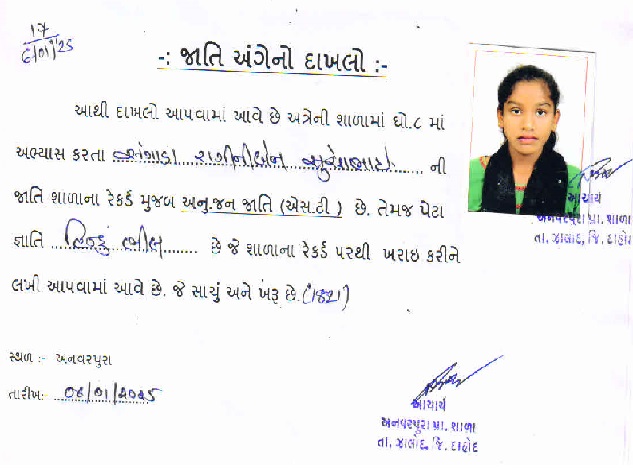 17
6/01/25
-: જાતિ અંગેનો દાખલો :-
આથી દાખલો આપવામાં આવે છે અત્રેની શાળામાં ધો.૮ માં
અભ્યાસ કરતા ની
જાતિ શાળાના રેકર્ડ મુજબ અનુ.જન જાતિ (એસ.ટી ) છે. તેમજ પેટા
જ્ઞાતિ હિન્દુ ભીલ છે જે શાળાના રેકર્ડ પરથી ખરાઇ કરીને
લખી આપવામાં આવે છે. જે સાચું અને ખરૂ છે.(1821)
આચાર્ય
અનવરપુરા પ્રા. શાળા
તા. ઝાલોદ, જિ. દાહોદ
સ્થળ :- અનવરપુરા
તારીખ: 06/01/2025
આચાર્ય
અનવરપુરા પ્રા. શાળા
તા. ઝાલોદ, જિ. દાહોદ